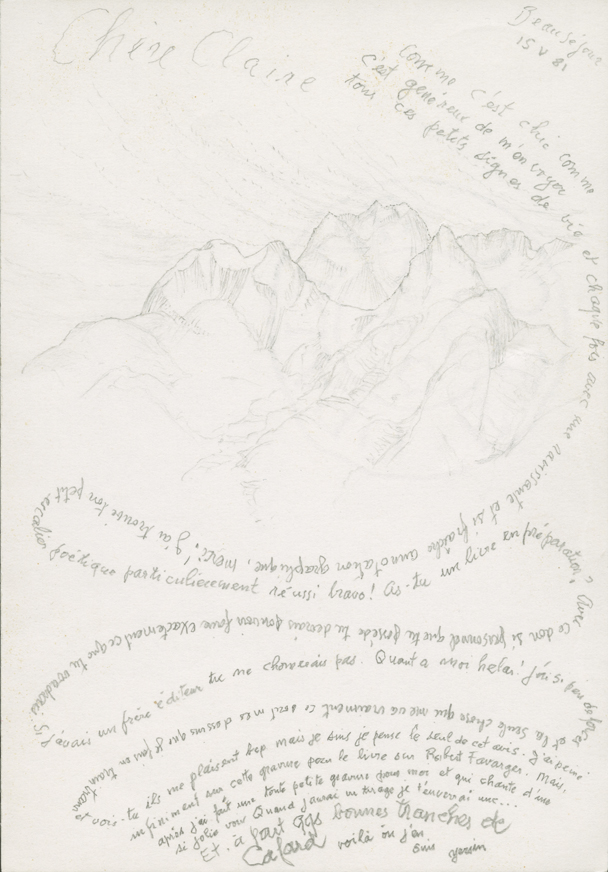 Beauséjour
15 V 81
Chère Claire
Comme c'est chic comme
c'est généreux de m'envoyer
tous ces petits signes de vie et chaque fois avec une ravissante et si fraîche annotation graphique, merci! j'ai trouvé ton petit escalier poétique particulièrement réussi bravo! As-tu un livre en préparation? Avec
ce don si personnel que tu possède tu devrais pouvoir faire exactement ce que tu voudrais. Si
j'avais un frère éditeur tu ne chomerais pas. Quant a moi helas! j'ai si peu de
et la seule chose que me vraiment ce sont mes dessins que je fais un
et vois-tu ils me plaisent bep mais je suis je pense le seul de cet avis. J'ai peiné
infiniment sur cette gravure pour le livre sur Robert Favarger. Mais,
après j'ai fait une toute petite gravure pour moi et qui chante d'une
si jolie voix Quand j'aurai un tirage je t'enverrai une...
Et. à part qqs bonnes tranches de
Cafard voilà où j'en
suis